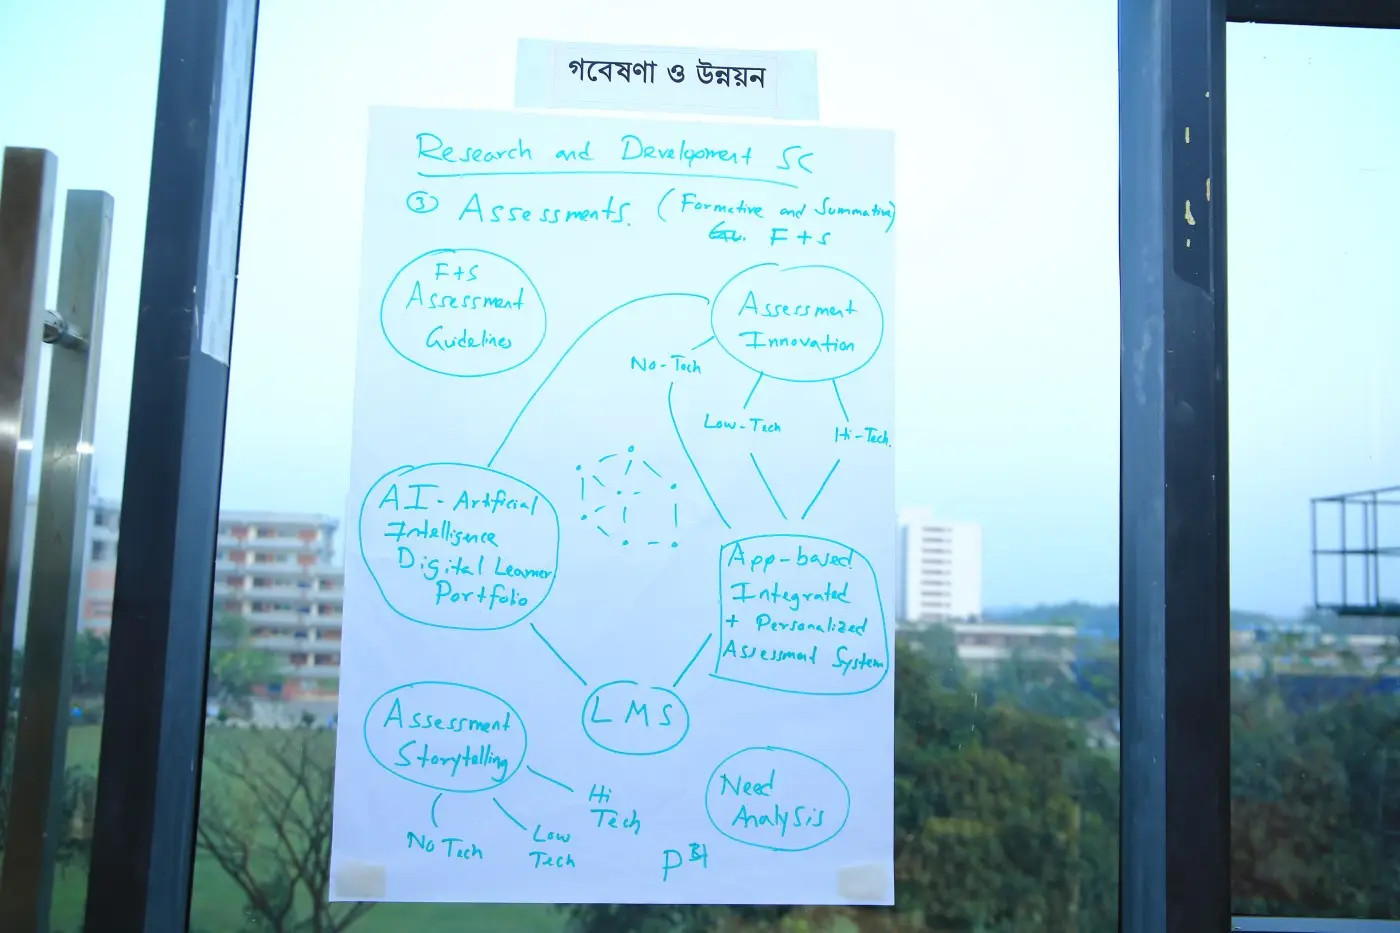 গবেষণা ও উন্নয়ন
Research and Development SC
③ Assessments. (Formative and Summative)
F + S
F+S
Assessment
Guidelines
Assessment
Innovation
No-Tech
Low-Tech
Hi-Tech.
AI - Artificial
Intelligence
Digital Learner
Portfolio
App-based
Integrated
+ Personalized
Assessment System
LMS
Assessment
Storytelling
Hi
Tech
Low
Tech
No Tech
Need
Analysis